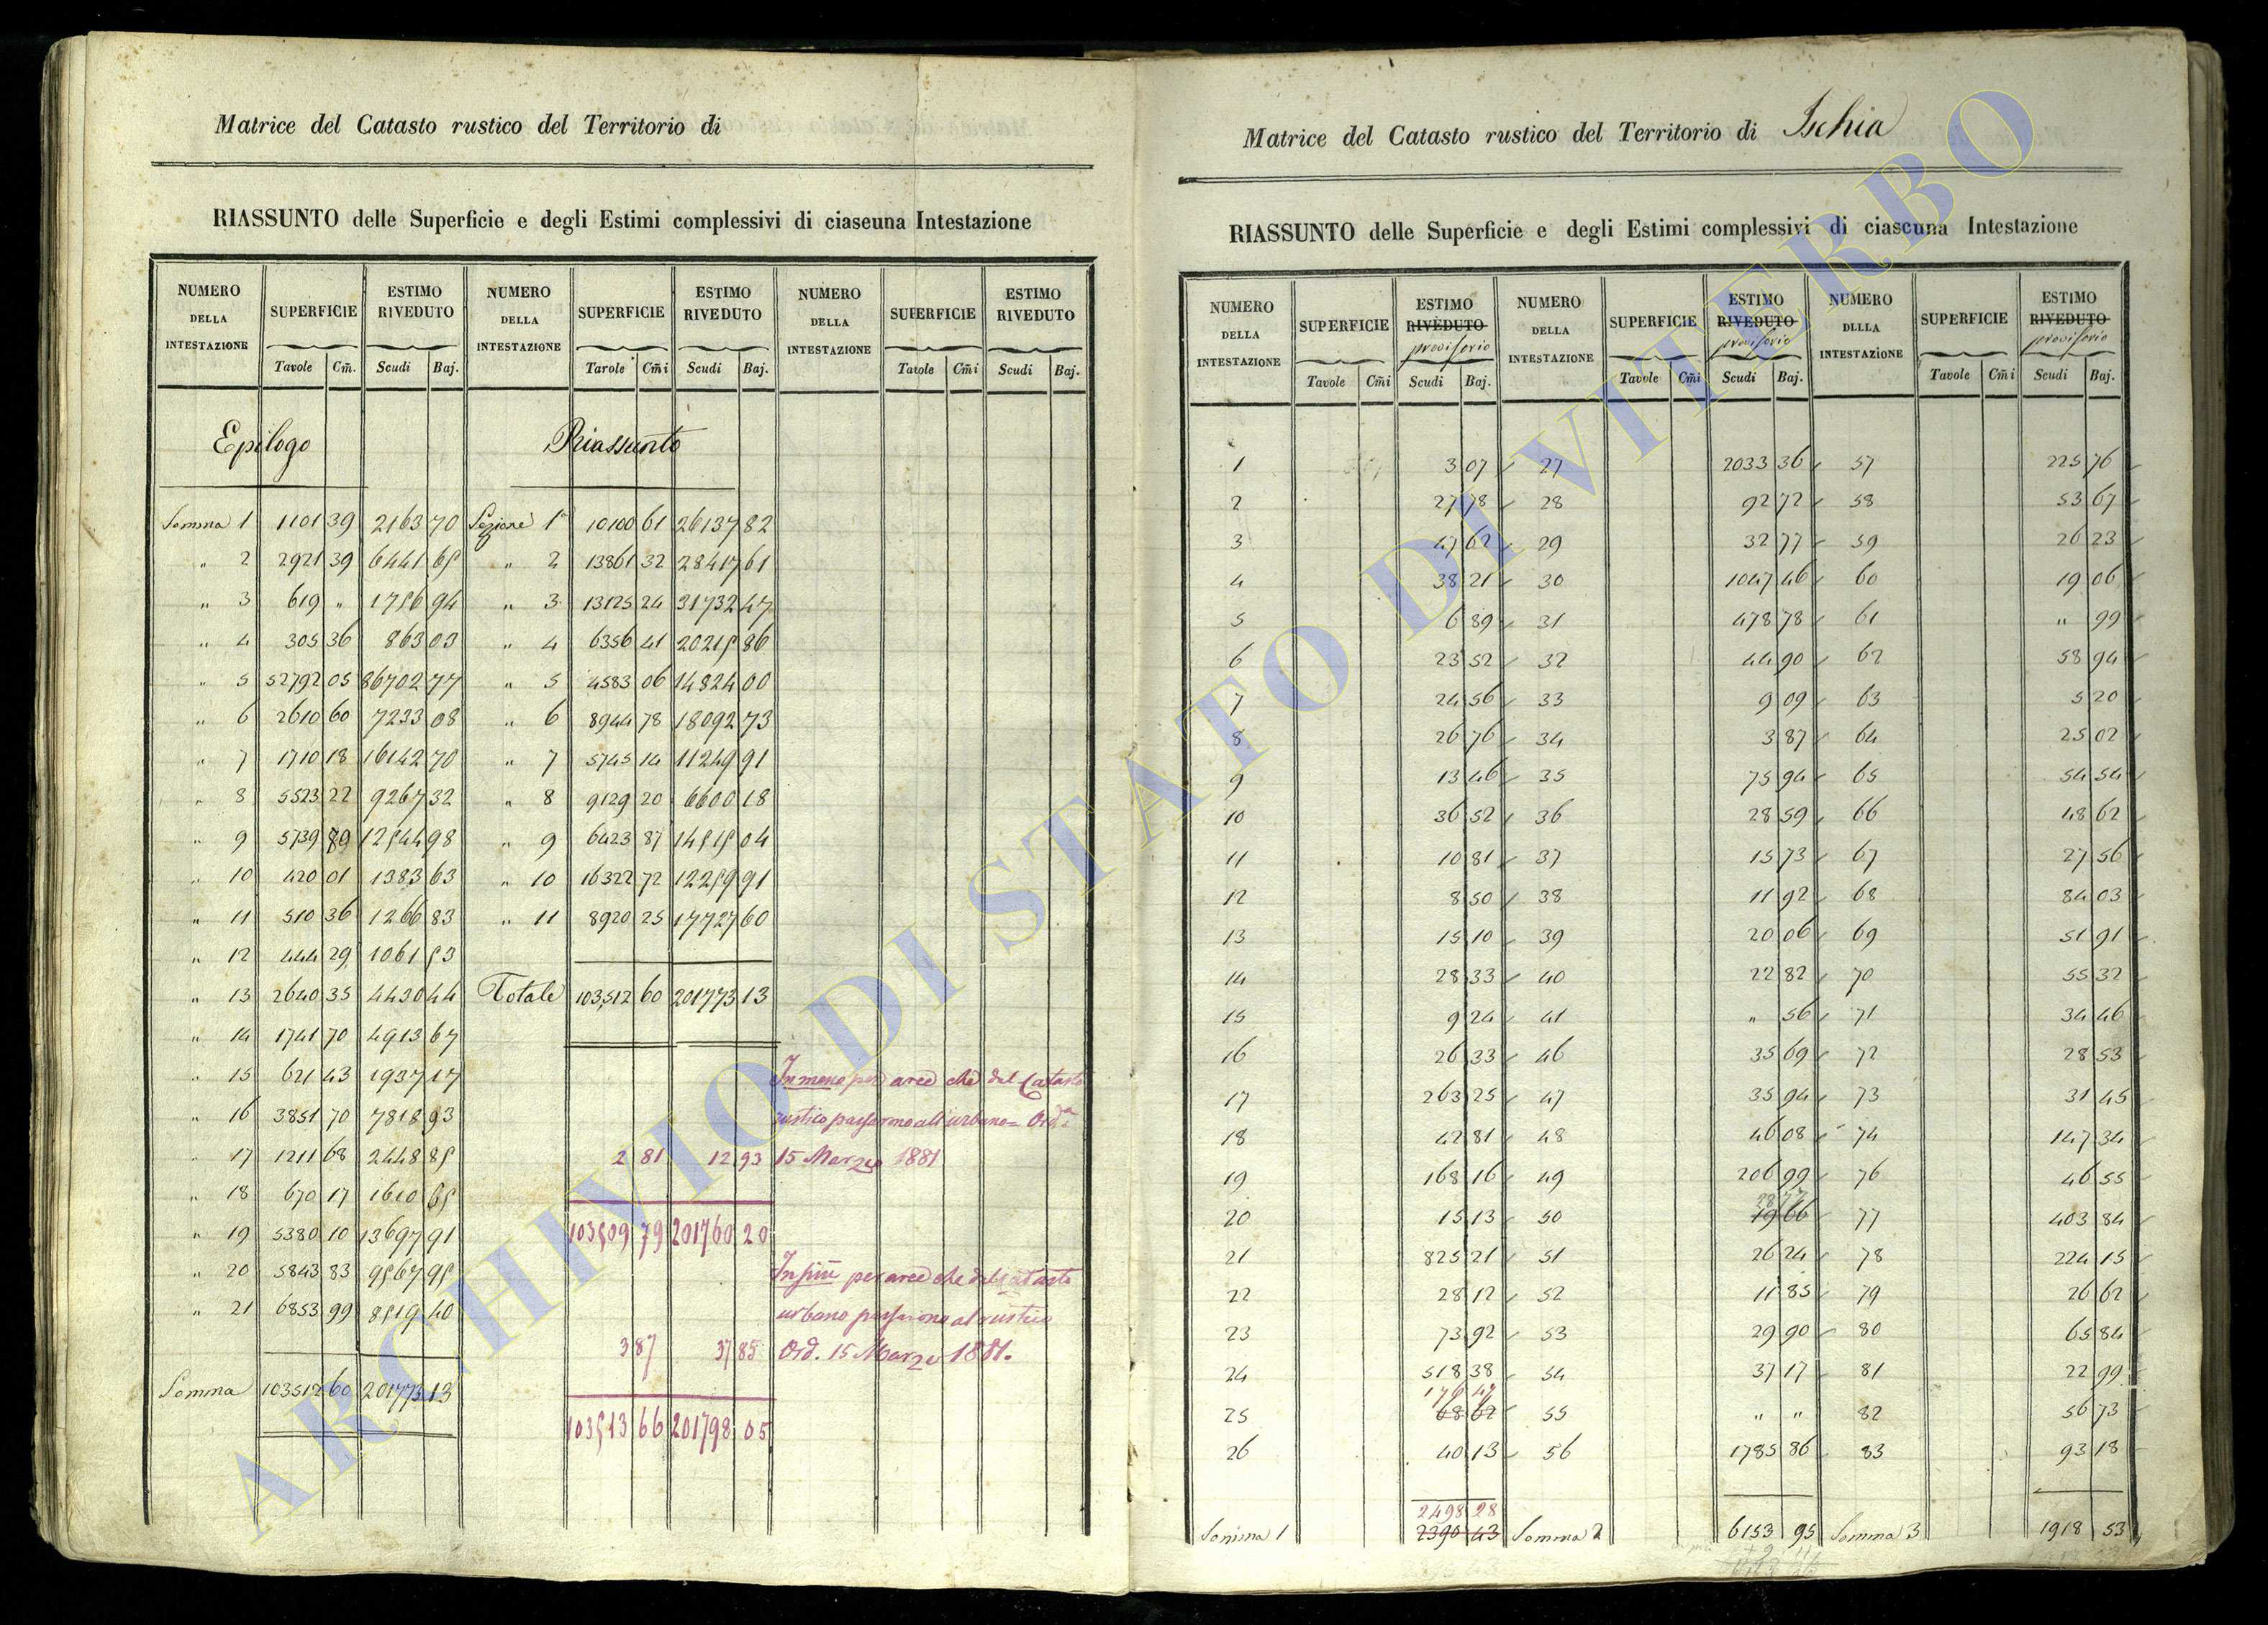 Matrice del Catasto rustico del Territorio di
RIASSUNTO delle Superficie e degli Estimi complessivi di ciaseuna Intestazione
NUMERO DELLA INTESTAZIONE SUPERFICIE ESTIMO RIVEDUTO NUMERO DELLA INTESTAZIONE SUPERFICIE ESTIMO RIVEDUTO NUMERO DELLA INTESTAZIONE SUPERFICIE ESTIMO RIVEDUTO
Tavole Cm̃. Scudi Baj. Tarole Cm̃i Scudi Baj. Tavole Cm̃i Scudi Baj.
Epilogo Riassunto
Somma 1 1101 39 2163 70 Sezione 1ª 10100 61 26137 82
" 2 2921 39 6441 65 " 2 13861 32 28417 61
" 3 619 " 1756 94 " 3 13125 24 31732 47
" 4 305 36 863 03 " 4 6356 41 20215 86
" 5 52792 05 86702 77 " 5 4583 06 14824 00
" 6 2610 60 7233 08 " 6 8944 78 18092 73
" 7 1710 18 16142 70 " 7 5745 14 11249 91
" 8 5523 22 9267 32 " 8 9129 20 6600 18
" 9 5739 89 12544 98 " 9 6423 87 14515 04
" 10 420 01 1383 63 " 10 16322 72 12259 91
" 11 510 36 1266 83 " 11 8920 25 17727 60
" 12 444 29 1061 53
" 13 2640 35 4430 44 Totale 103,512 60 201773 13
" 14 1741 70 4913 67
" 15 621 43 1937 17 In meno per aree che dal Catasto
" 16 3851 70 7818 93 rustico passarono all'urbano = Ord.ª
" 17 1211 68 2448 85 2 81 12 93 15 Marzo 1881
" 18 670 17 1610 65
" 19 5380 10 13697 91 103509 79 201760 20
" 20 5843 83 9567 95 In più per aree che dal catasto
" 21 6853 99 8519 40 urbano passarono al rustico
3 87 37 85 Ord. 15 Marzo 1881.
Somma 103512 60 201773 13
103513 66 201798 05
Matrice del Catasto rustico del Territorio di Ischia
RIASSUNTO delle Superficie e degli Estimi complessivi di ciascuna Intestazione
NUMERO DELLA INTESTAZIONE SUPERFICIE ESTIMO RIVEDUTO provisorio NUMERO DELLA INTESTAZIONE SUPERFICIE ESTIMO RIVEDUTO provisorio NUMERO DLLLA INTESTAZIONE SUPERFICIE ESTIMO RIVEDUTO provisorio
Tavole Cm̃i Scudi Baj. Tavole Cm̃i Scudi Baj. Tavole Cm̃i Scudi Baj.
1 3 07 27 2033 36 57 225 76
2 27 78 28 92 72 58 53 67
3 47 62 29 32 77 59 26 23
4 38 21 30 1047 46 60 19 06
5 6 89 31 478 78 61 " 99
6 23 52 32 44 90 62 58 94
7 24 56 33 9 09 63 5 20
8 26 76 34 3 87 64 25 02
9 13 46 35 75 94 65 54 54
10 36 52 36 28 59 66 48 62
11 10 81 37 15 73 67 27 56
12 8 50 38 11 92 68 84 03
13 15 10 39 20 06 69 51 91
14 28 33 40 22 82 70 55 32
15 9 24 41 " 56 71 34 46
16 26 33 46 35 69 72 28 53
17 263 25 47 35 94 73 31 45
18 42 81 48 46 08 74 147 34
19 168 16 49 206 99 76 46 55
28 77
20 15 13 50 19 66 77 403 84
21 825 21 51 26 24 78 224 15
22 28 12 52 11 85 79 26 62
23 73 92 53 29 90 80 65 84
24 518 38 54 37 17 81 22 99
176 47
25 68 62 55 " " 82 56 73
26 40 13 56 1785 86 83 93 18
2498 28
Somma 1 2390 43 Somma 2 6153 95 Somma 3 1918 53
ARCHIVIO DI STATO DI VITERBO